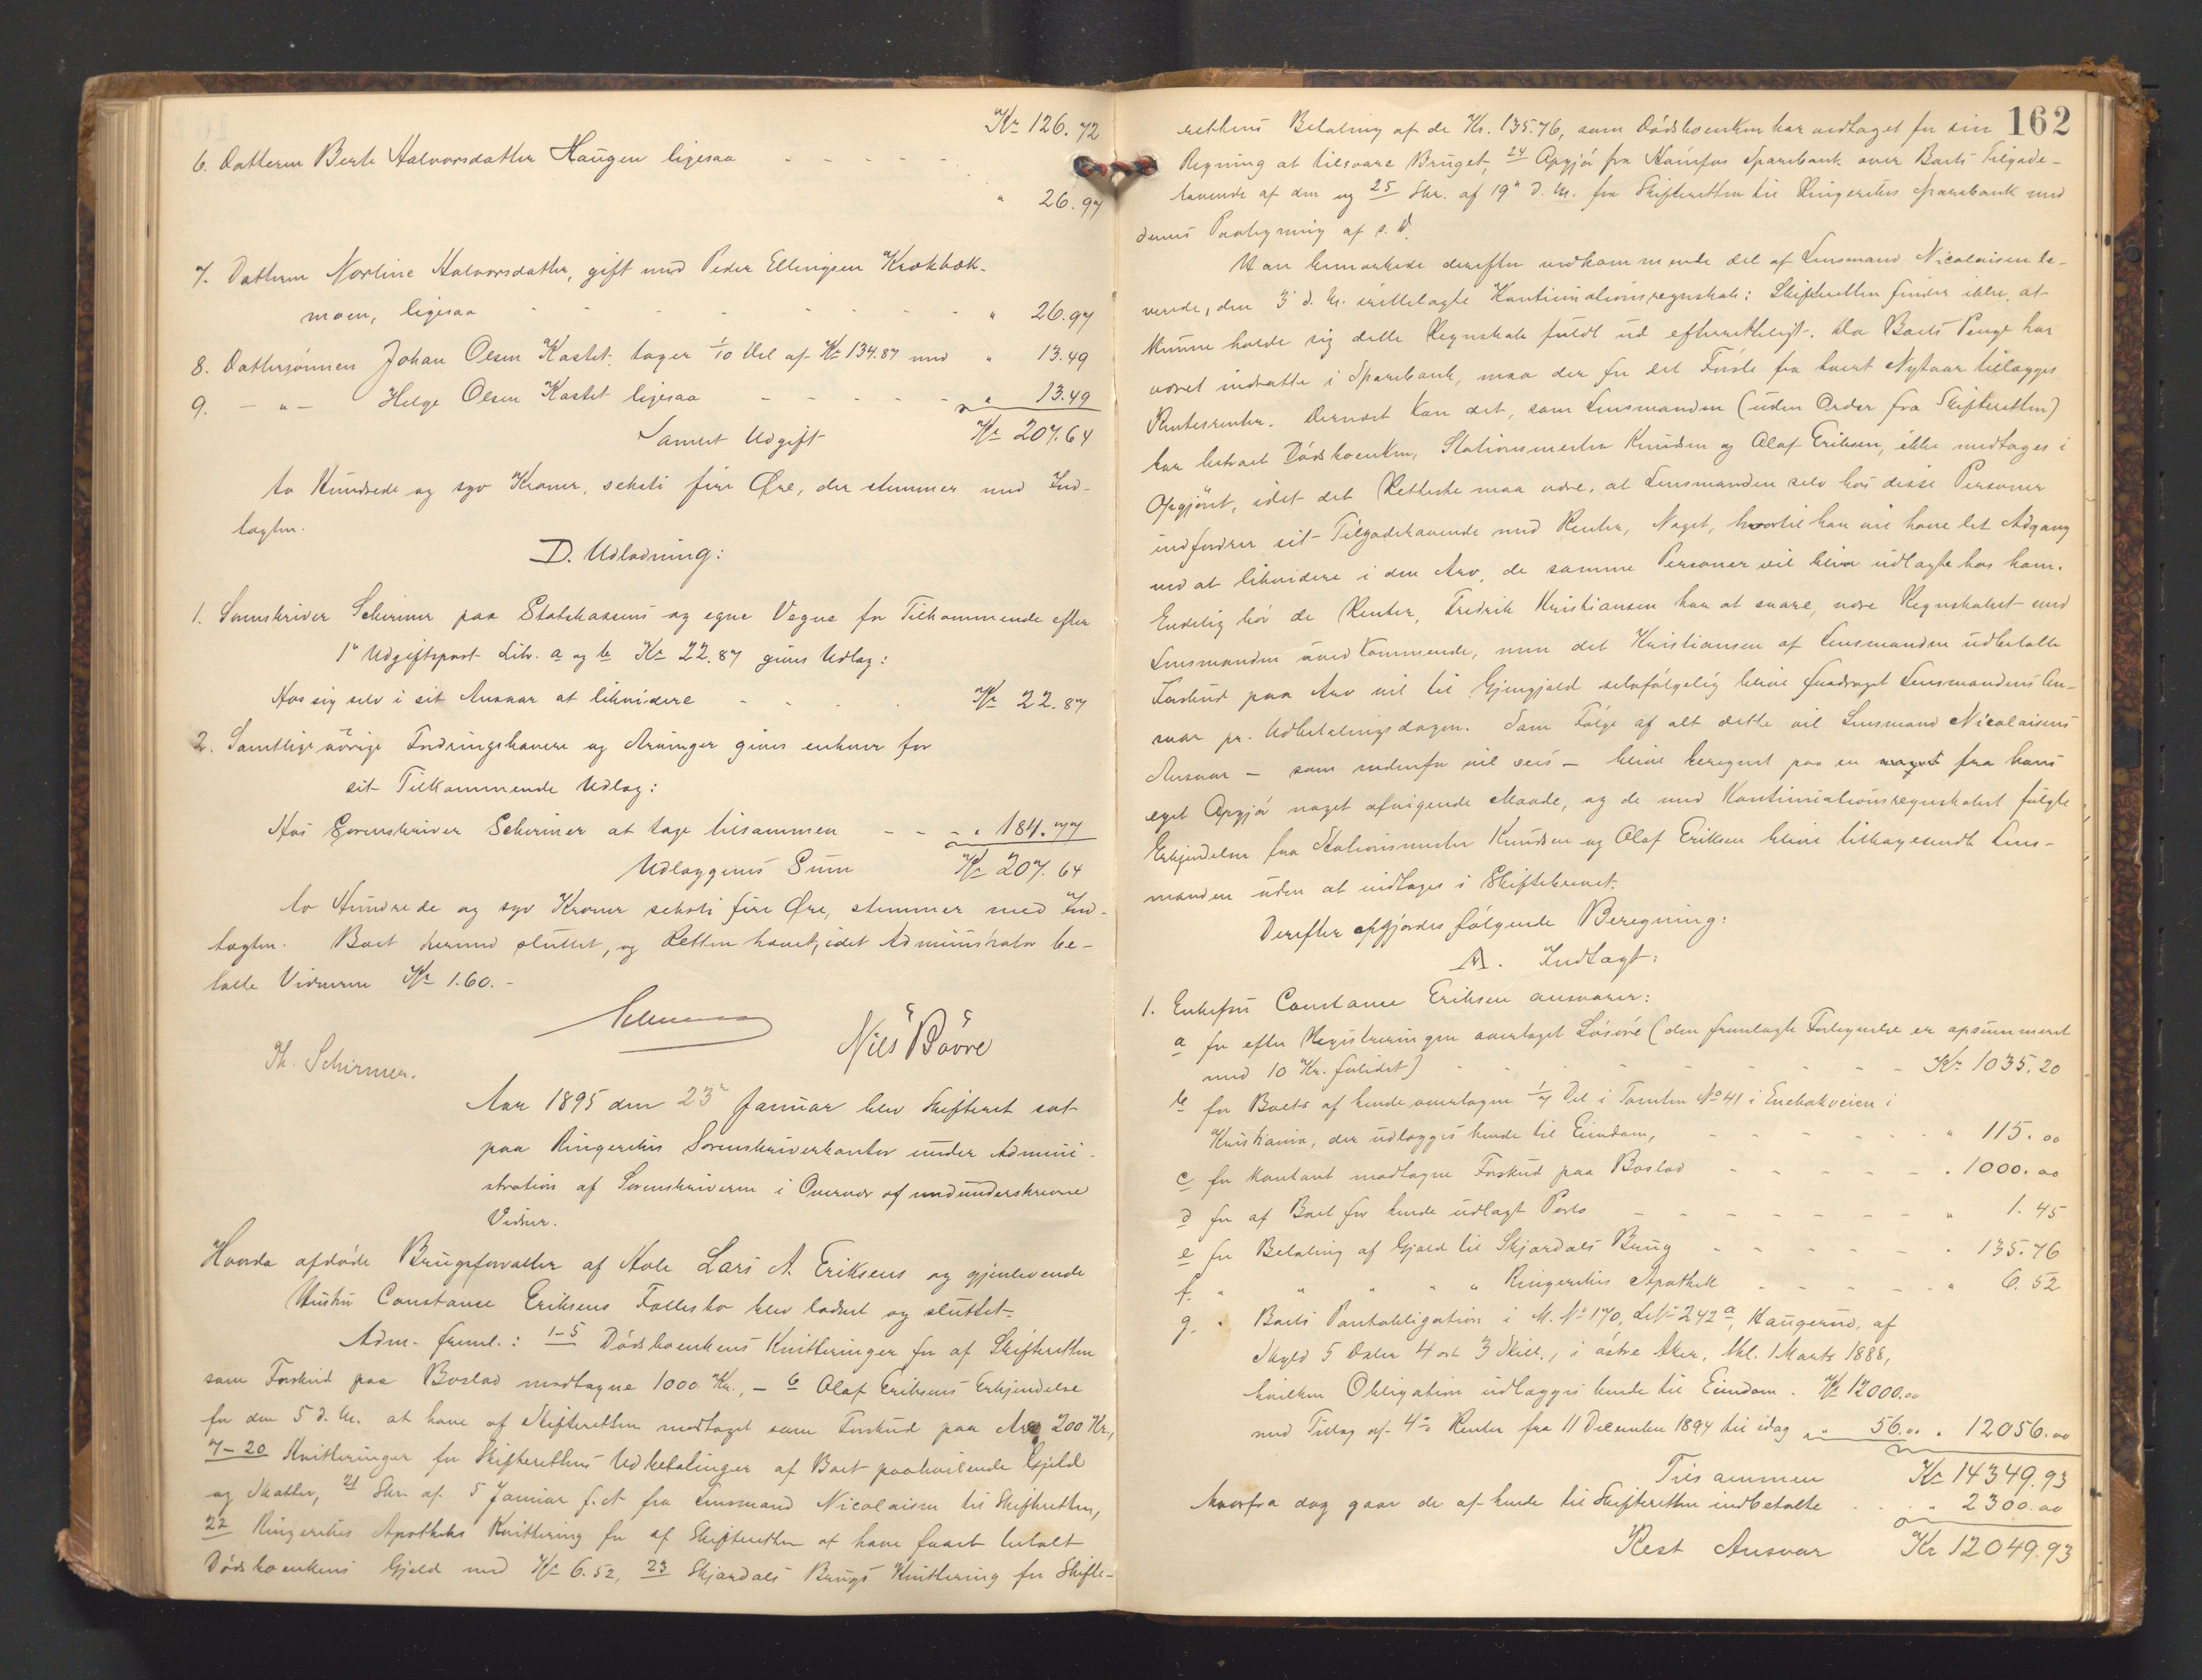 Kr 126.72
6. Datteren Berte Halvorsdatter Haugen ligesaa - - - - -
" 26.97
7. Datteren Nortine Halvorsdatter, gift med Peder Ellingsen Krokbæk-
moen, ligesaa - - - - - - - " 26.97
8. Dattersønnen Johan Olsen Kastet tager 1/10 Del af Kr 134.87 med " 13.49
9. - " - Helge Olsen Kastet ligesaa - - - - " 13.49
Samlet Udgift Kr 207.64
to Hundrede og syv Kroner, seksti fire Øre, der stemmer med Ind-
tægten.
D. Udlodning:
1. Sorenskriver Schirmer paa Statskassens og egne Vegne for Tilkommende efter
1ste Udgiftspost Litr. a og b Kr 22.87 gives Udlæg:
Hos sig selv i sit Ansvar at likvidere - - - Kr 22.87
2. Samtlige øvrige Fordringshavere og Arvinger gives enhver for
sit Tilkommende Udlæg:
Hos Sorenskriver Schirmer at tage tilsammen - - - " 184.77
Udlæggenes Sum Kr 207.64
to Hundrede og syv Kroner seksti fire Øre, stemmer med Ind-
tægten. Boet dermed sluttet, og Retten hævet, idet Administrator be-
talte Vidnerne Kr 1.60. -
Schirmer
Th. Schirmer. Nils Bövre
Aar 1895 den 23de Januar blev Skifteret sat
paa Ringerikes Sorenskriverkontor under Admini-
stration af Sorenskriveren i Overvær af medunderskrevne
Vidner.
Hvorda afdøde Brugsforvalter af Hole Lars A. Eriksens og gjenlevende
Hustru Constance Eriksens Fællesbo blev lodnet og sluttet.
Adm. freml.: 1-5 Dødsboenkens Kvitteringer for af Skifteretten
som Forskud paa Boslod modtagne 1000 Kr., - 6 Olaf Eriksens Erkjendelse
for den 5 d. M. at have af Skifteretten modtaget som Forskud paa Arv 200 Kr.,
7-20 Kvitteringer for Skifterettens Udbetalinger af Boet paahvilende Gjeld
og Skatter, 21 Skr. af 5 Januar f. A. fra Lensmand Nicolaisen til Skifteretten,
22 Ringerikes Apotheks Kvittering for af Skifteretten at have faaet betalt
Dødsboenkens Gjeld med Kr 6.52, 23 Skjærdals Brugs Kvittering for Skifte-
162
rettens Betaling af de Kr. 135.76, som Dødsboenken har vedtaget for sin
Regning at tilsvare Bruget, 24 Opgjør fra Hønefos Sparebank over Boets Tilgode-
havende af den og 25 Skr. af 19de d. M. fra Skifteretten til Ringerikes Sparebank med
dennes Paategning af s. D.
Man bemærkede derefter vedkommende det af Lensmand Nicolaisen le-
verede, den 3 d. M. irettelagte Kontinuationsregnskab: Skifteretten finder ikke, at
kunne holde sig dette Regnskab fuldt ud efterrettelig. Da Boets Penge har
været indsatte i Sparebank, maa der for det Første fra hvert Nytaar tillægges
Rentesrenter. Dernæst kan det, som Lensmanden (uden Order fra Skifteretten)
har betalt Dødsboenken, Stationsmester Knudsen og Olaf Eriksen, ikke medtages i
Opgjøret, idet det Retteste maa være, at Lensmanden selv hos disse Personer
indfordrer sit Tilgodehavende med Renter, Noget, hvortil han vil have let Adgang
ved at likvidere i den Arv, de samme Personer vil blive udlagte hos ham.
Endelig bør de Renter, Fredrik Kristiansen har at svare, være Regnskabet med
Lensmanden uvedkommende, men det Kristiansen af Lensmanden udbetalte
Forskud paa Arv vil til Gjengjæld selvfølgelig blive fradraget Lensmandens An-
svar pr. Udbetalingsdagen. Som Følge af alt dette vil Lensmand Nicolaisens
Ansvar - som nedenfor vil sees - blive beregnet paa en noget fra hans
eget Opgjør noget afvigende Maade, og de med Kontinuationsregnskabet fulgte
Erkjendelser fra Stationsmester Knudsen og Olaf Eriksen blive tilbagesendt Lens-
manden uden at indtages i Skiftebrevet.
Derefter opgjordes følgende Beregning:
A. Indtægt:
1. Enkefru Constance Eriksen ansvarer:
a for efter Registreringen overtaget Løsøre (den fremlagte Fortegnelse er opsummeret
med 10 Kr. forlidet) - - - - - - - Kr 1035.20
b for Boets af hende overtagne 1/7 Del i Tomten No 41 i Enebakveien i
Kristiania, der udlægges hende til Eiendom, - - - - - " 115.00
c for kontant modtagne Forskud paa Boslod - - - - - " 1000.00
d for af Boet for hende udlagt Porto - - - - - - - " 1.45
e for Betaling af Gjæld til Skjærdals Brug - - - - - " 135.76
f. " " " " " Ringerikes Apothek - - - - - " 6.52
g. " Boets Pantobligation i M. No 170, L No 242a, Haugerud, af
Skyld 5 Daler 4 ort 3 Skill., i østre Aker, tkl. 1 Marts 1888,
hvilken Obligation udlægges hende til Eiendom - Kr 12000.00
med Tillæg af 4% Renter fra 11 December 1894 til idag " 56.00 " 12056.00
Tilsammen Kr 14349.93
hvorfra dog gaar de af hende til Skifteretten indbetalte - - " 2300.00
Rest Ansvar Kr 12049.93